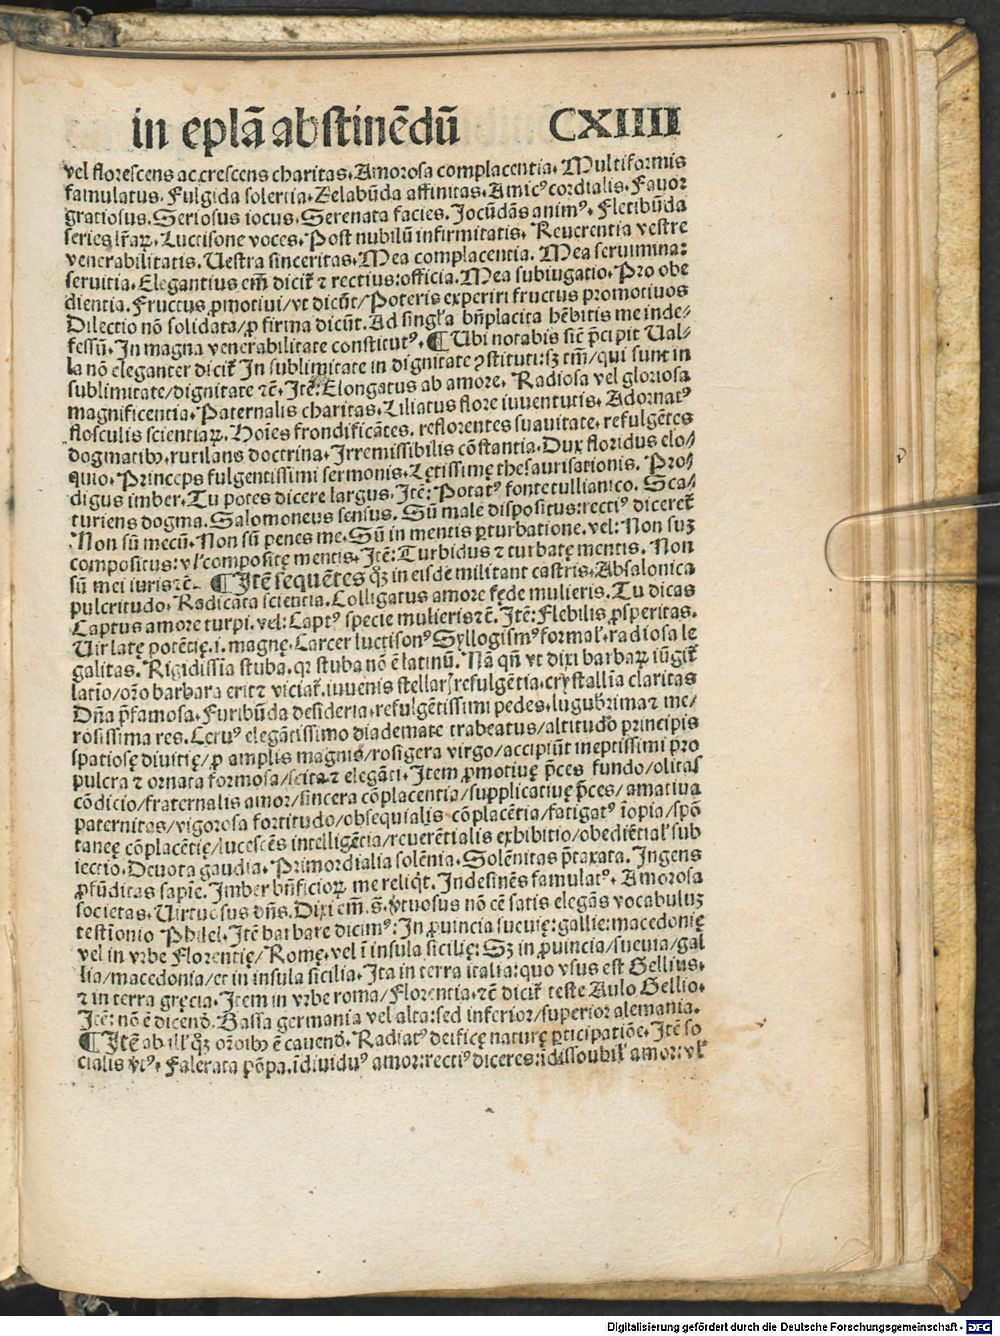 in eplā abstinēdū CXIIII
vel florescens accrescens charitas. Amorosa complacentia. Multiformis
famulatus. Fulgida solertia. Zelabūda affinitas. Amicꝰ cordialis. Fauor
gratiosus. Seriosus iocus. Serenata facies. Jocūdās animꝰ. Fletibūda
series lr̄aꝝ. Luctisone voces. Post nubilū infirmitatis. Reuerentia vestre
venerabilitatis. Uestra sinceritas. Mea complacentia. Mea seruimina:
seruitia. Elegantius em̄ dicit̄ ⁊ rectius: officia. Mea subiugatio. Pro obe
dientia. Fructus ꝓmotiui/vt dicūt/Poteris experiri fructus promotiuos
Dilectio nō solidata/ꝓ firma dicūt. Ad singl'a bn̄placita hēbitis me inde⸗
fessū. In magna venerabilitate constitutꝰ. ¶ Ubi notabis sic̄ p̄cipit Ual⸗
la nō eleganter dicit̄ In sublimitate in dignitate ꝯstituti: sꝫ tm̄/qui sunt in
sublimitate/dignitate ⁊c̄. Itē: Elongatus ab amore. Radiosa vel gloriosa
magnificentia. Paternalis charitas. Liliatus flore iuuentutis. Adornatꝰ
flosculis scientiaꝝ. Hoīes frondificātes. reflorentes suauitate. refulgētes
dogmatibꝫ. rutilans doctrina. Irremissibilis cōstantia. Dux floridus elo⸗
quio. Princeps fulgentissimi sermonis. Lętissimę thesaurisationis. Pro⸗
digus imber. Tu potes dicere largus. Itē: Potatꝰ fonte tullianico. Sca⸗
turiens dogma. Salomoneus sensus. Sū male dispositus: rectiꝰ diceret̄
Non sū mecū. Non sū penes me. Sū in mentis ꝑturbatione. vel: Non suꝫ
compositus: vl' compositę mentis. Itē: Turbidus ⁊ turbatę mentis. Non
sū mei iuris ⁊c̄. ¶ Itē sequētes qꝫ in eisdē militant castris. Absalonica
pulcritudo. Radicata scientia. Colligatus amore fęde mulieris. Tu dicas
Captus amore turpi. vel: Captꝰ specie mulieris ⁊c̄. Itē: Flebilis ꝓsperitas.
Uir latę potētię. i. magnę. Carcer luctisonꝰ Syllogismꝰ formal'. radiosa le
galitas. Rigidissīa stuba. qr stuba nō ē latinū. Nā qn̄ vt dixi barbaꝝ iūgit̄
latīo/or̄o barbara erit ⁊ viciat̄. iuuenis stellar refulgētia. crystallīa claritas
Dn̄a p̄famosa. Furibūda desideria. refulgētissimi pedes. lugubrima ⁊ me⸗
rosissima res. Ceruꝰ elegātissimo diademate trabeatus/altitudo principis
spatiosę diuitię/ꝓ amplis magnis/rosigera virgo/accipiūt ineptissimi pro
pulcra ⁊ ornata formosa/scita ⁊ elegāti. Item ꝓmotiuę p̄ces fundo/olitas
cōdicio/fraternalis amor/sincera cōplacentia/supplicatiuę p̄ces/amatiua
paternitas/vigorosa fortitudo/obsequialis cōplacētia/fatigatꝰ īopia/spō
taneę cōplacētię/lucescēs intelligētia/reuerētialis exhibitio/obediētial' sub
iectio. Deuota gaudia. Primordialia solēnia. Solēnitas p̄taxata. Ingens
ꝓfūditas sapīe. Imber bn̄ficioꝝ me reliqt. Indesinēs famulatꝰ. Amorosa
societas. Uirtuosus dn̄s. Dixi em̄. s. vtuosus nō eē satis elegās vocabuluꝫ
testīonio Philel. Itē barbare dicimꝰ: In ꝓuincia sueuię: gallie: macedonię
vel in vrbe Florentię/Romę. vel ī insula sicilię: Sꝫ in ꝓuincia/sueuia/gal
lia/macedonia/et in insula sicilia. Ita in terra italia: quo vsus est Gellius.
⁊ in terra gręcia. Item in vrbe roma/Florentia. ⁊c̄ dicit̄ teste Aulo Gellio.
Itē: nō ē dicend̄. Bassa germania vel alta: sed inferior/superior alemania.
¶ Itē ab ill' qꝫ or̄oībꝫ ē cauend̄. Radiatꝰ deificę naturę ꝑticipatiōe. Itē so
cialis vtꝰ. Falerata pōpa. īdiuiduꝰ amor: rectiꝰ diceres: īdissoubil' amor: vl'
Digitalisierung gefördert durch die Deutsche Forschungsgemeinschaft - DFG